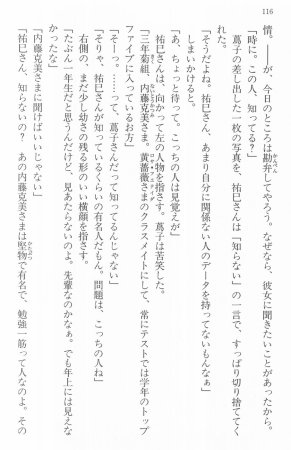 116
情。――が、今日のところは勘弁してやろう。なぜなら、彼女に聞きたいことがあったから。
「時に。この人、知ってる?」
蔦子の差し出した一枚の写真を、祐巳さんは「知らない」の一言で、すっぱり切り捨ててく
れた。
「そうだよね。祐巳さん、あまり自分に関係ない人のデータを持ってないもんなぁ」
しまいかけると。
「あ、ちょっと待って。こっちの人は見覚えが」
祐巳さんは、向かって左の人物を指さす。蔦子は苦笑した。
「三年菊組、内藤克美さま。黄薔薇さまのクラスメイトにして、常にテストでは学年のトップ
ファイブに入っているお方」
「そーっ。……って、蔦子さんだって知ってるんじゃない」
「そりゃ、祐巳さんが知っているくらいの有名人だもん。問題は、こっちの人ね」
右側の、まだ少し幼さの残る形のいい横顔を指す。
「たぶん一年生だと思うんだけど、見あたらないのよ。先輩なのかなぁ。でも年上には見えな
かったな」
「内藤克美さまに聞けばいいじゃない」
「祐巳さん、知らないの? あの内藤克美さまは堅物で有名で、勉強一筋って人なのよ。その